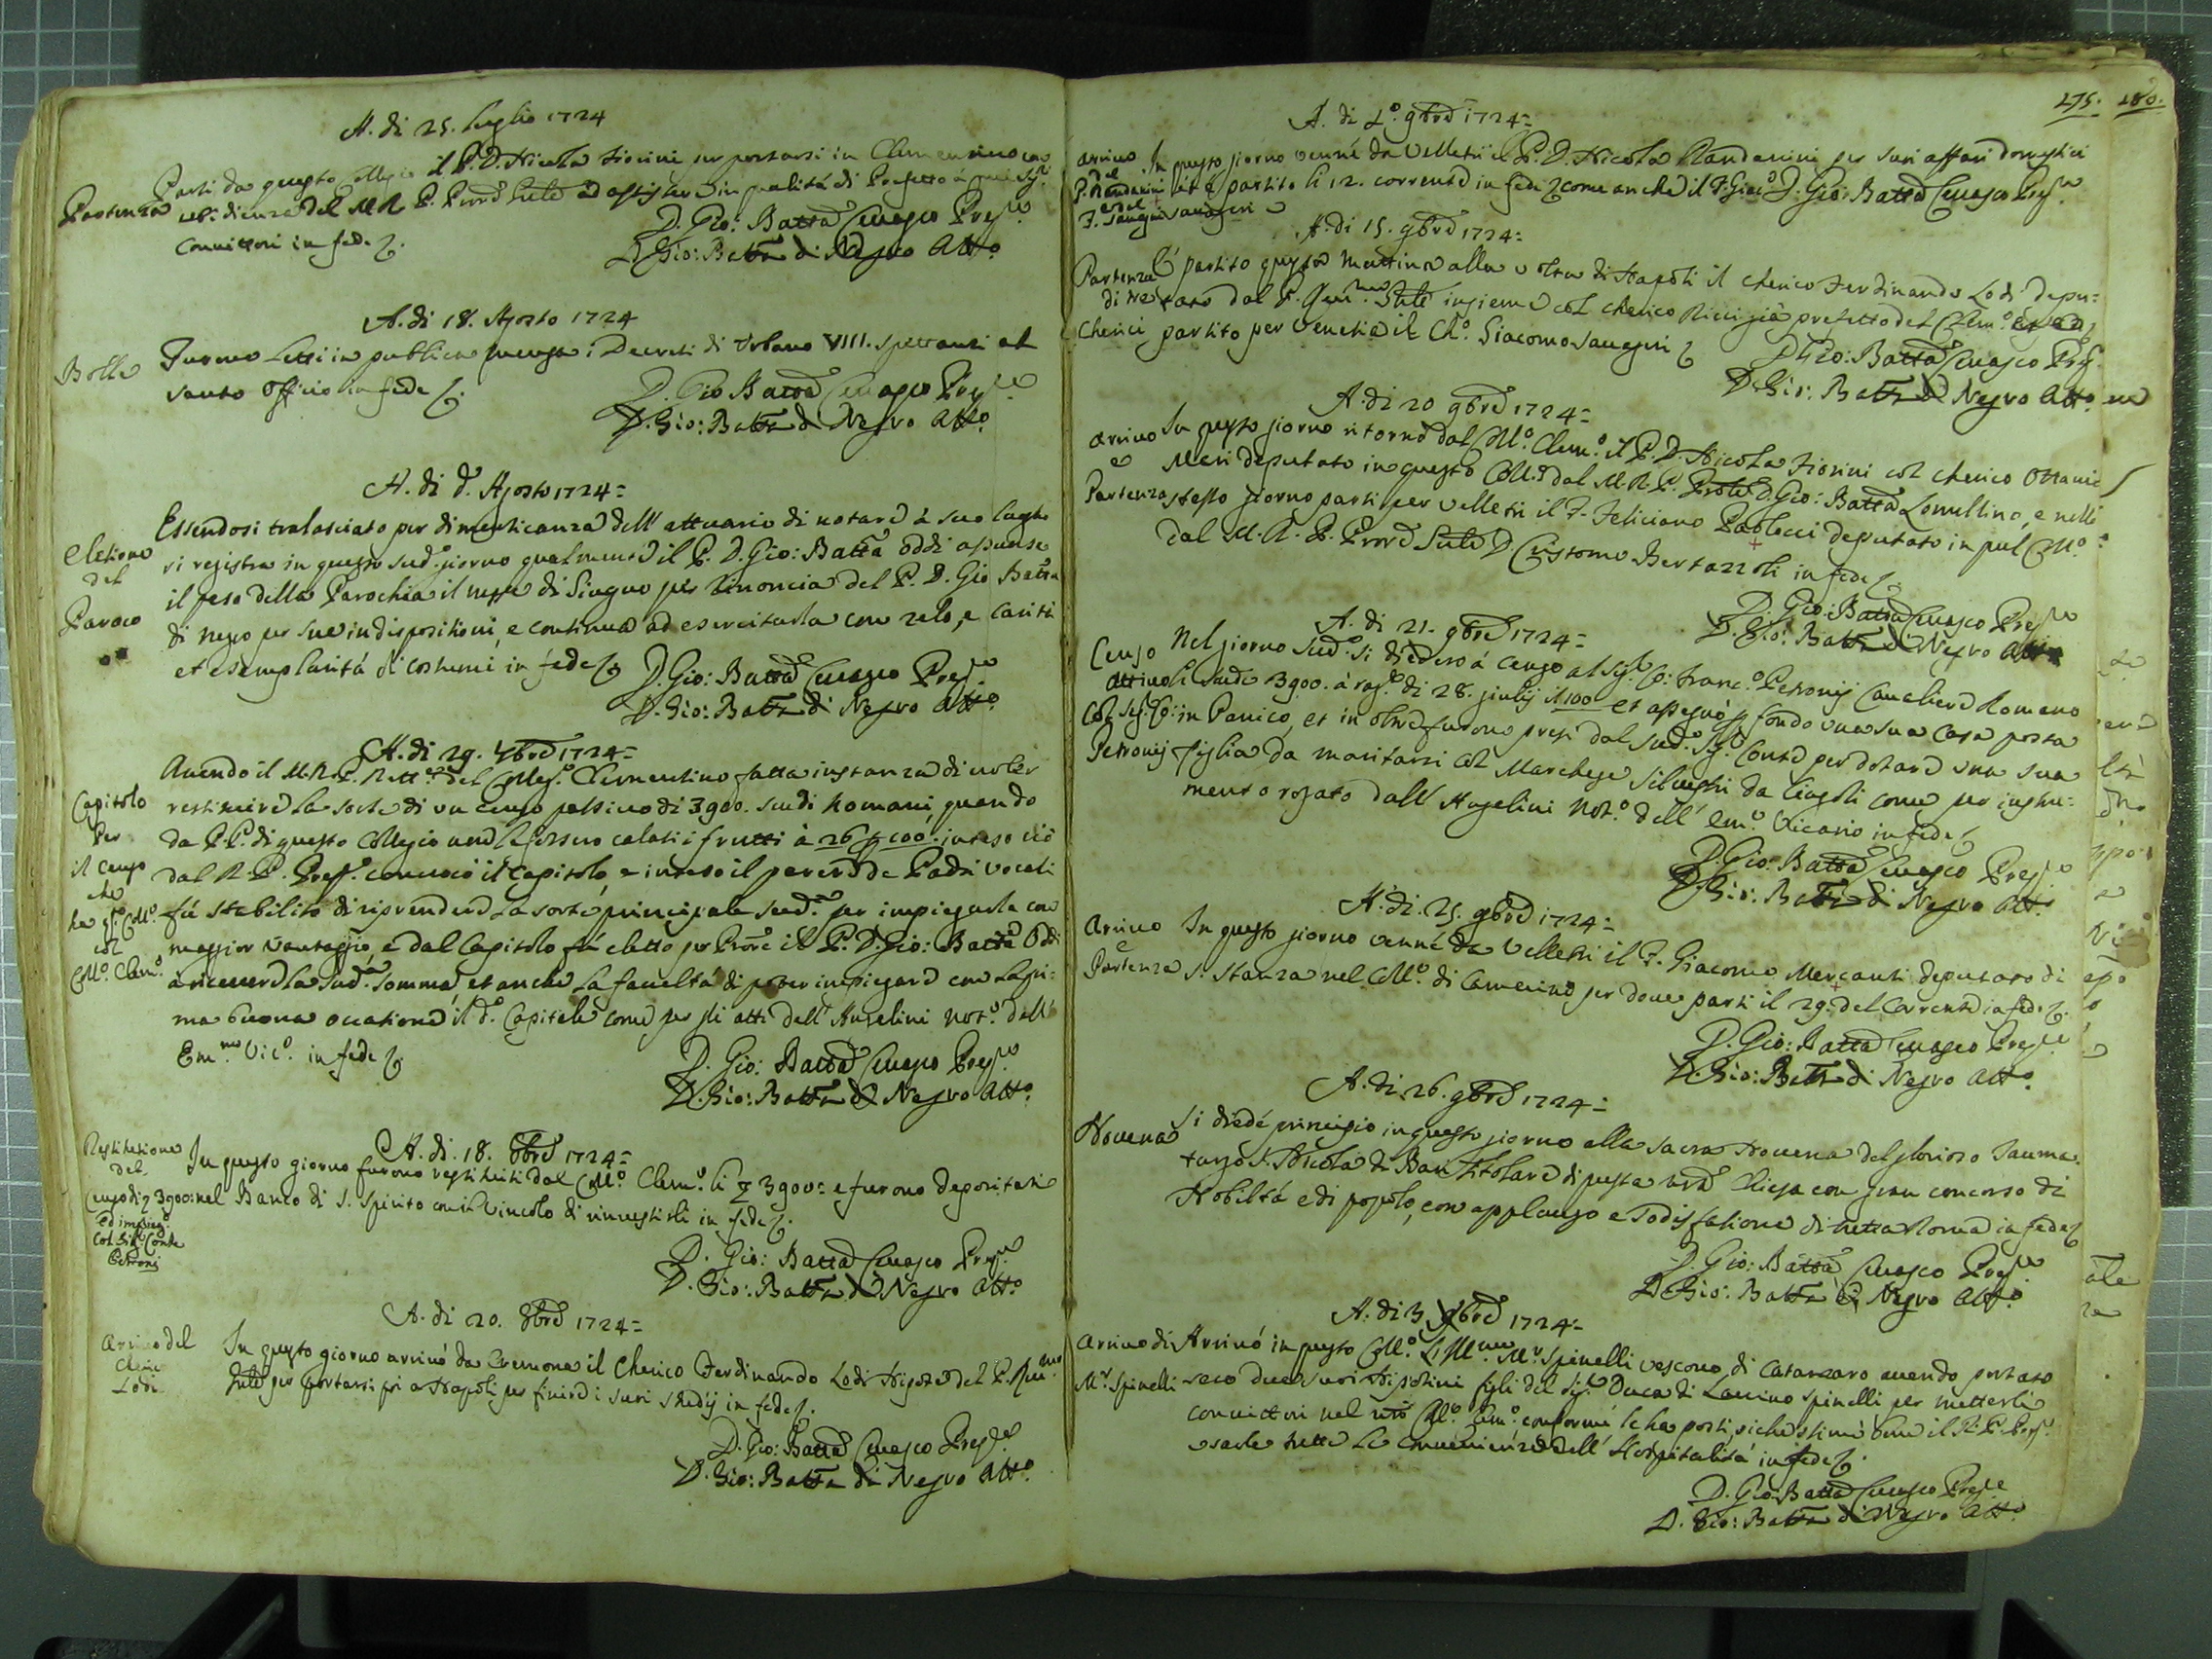 A. di 25. Luglio 1724
Partenza
Partì da questo Collegio il P. D. Nicola Fiorini per portarsi in Clementino
ubidienza del M. R. P. Prov.le ad assistere in qualità di Prefetto à quei Sig.ri
Convittori in fede
D. Gio: Batta Cevasco Prep.to
D. Gio: Batta di Negro Att.o
A. di 18. Agosto 1724
Bolle
Furono Letti in publica mensa i Decreti di Urbano VIII. spettanti al
santo Officio in fede
D. Gio Batta Cevasco Prep.to
D. Gio: Batta di Negro Att.o
A. di d.o Agosto 1724=
Eletione
del
Paroco
Essendosi tralasciato per dimenticanza dell' attuario di notare à suo luogho
si registra in questo sud.o giorno qualmente il P. D. Gio: Batta Oddi assunse
il peso della Parochia il mese di Giugno per renoncia del P. D. Gio Batta
di Negro per sue indispositioni, e continua ad esercitarla con zelo, e carità
et esemplarità di costumi in fede
D. Gio: Batta Cevasco Prep.to
D. Gio: Batta di Negro Att.o
A. di 29. 7bre 1724=
Capitolo
Per
il censo
che
ha q.o Coll.o
col
Coll.o Clem.o
Avendo il M. R. P. Rett.re del Colleg.o Clementino fatta instanza di voler
restituire la sorte di un censo passivo di 3900. scudi Romani, quando
da P.P. di questo Collegio non le fossero calati i frutti à 26 p 100. inteso ciò
dal R. P. Prep.to convocò il Capitolo, e inteso il parere de Padri Vocali
fù stabilito di riprendere la sorte principale sud.a per impiegarla con
maggior vantaggio, e dal Capitolo fù eletto per Proré il P. D. Gio: Batta Oddi
à ricevere la sud.a somma, et anche la facoltà di poter impiegare con la pri-
ma buona occasione il d.o Capitale come per gli atti dell' Angelini Not.o dell'
Em.mo Vic.o in fede
D. Gio: Batta Cevasco Prep.to
D. Gio: Batta di Negro Att.o
A. di. 18. 8bre 1724=
Restitutione
del
Censo di 3900:
ed impieg.o
Col Sig.r Conte
Petronj
In questo giorno furono restituiti dal Coll.o Clem.o li 3900: e furono depositati
nel Banco di S. Spirito con il Vincolo di rinvestirli in fede
D. Gio: Batta Cevasco Prep.to
D. Gio: Batta di Negro Att.o
A. di 20. 8bre 1724=
Arrivo del
Cherico
Lodi
In questo giorno arrivò da Cremona il Cherico Ferdinando Lodi Nipote del P. Rev.mo
per portarsi poi a Napoli per finire i suoi studij in fede
D. Gio: Batta Cevasco Prep.to
D. Gio: Batta di Negro Att.o
275. 280.
A. di 2.o 9bre 1724=
Arrivo
del
e del
In questo giorno venne da Velletri il P. D. Nicola per suoi affari domestici
et è partito li 12. corrente in fede come anche il F. Giac.o
D. Gio: Batta Cevasco Prep.to
A. di 15. 9bre 1724=
Partenza
di tre
Cherici
È partito questa mattina alla volta di Napoli il Cherico Ferdinando Lodi depu=
tato dal P. insieme col cherico Ricci già prefetto del Clem.o
partito per Venetia il Ch.o Giacomo Sangeri
D Gio: Batta Cevasco Prep.
D. Gio: Batta di Negro Att.o
A. di 20 9bre 1724=
Arrivo
e
Partenza
In questo giorno ritornò dal Coll.o Clem.o il P. D. Nicola Fiorini col cherico Ottavio
Meri deputato in questo Coll.o dal M. R. P. D. Gio: Batta Lomellino, e nello
stesso giorno partì per Velletri il F. Feliciano Paolocci deputato in quel Coll.o
dal M. R. P. D Crisstomo Bertazzoli in fede
D. Gio: Batta Cevasco Prep.to
D. Gio: Batta di Negro Att.o
A. di 21. 9bre 1724=
Censo
attivo
Col Sig.r Co:
Petronij
Nel giorno sud.o si diedero à censo al Sig.r Co: Franc.o Petronij Cavaliere Romano
li scudi 3900. à rag.e di 28. giulij il 100 et assegnò p fondo una sua Casa posta
in Panico, et in oltre furono presi dal sud.o Sig.r Conte per dotare una sua
figlia da maritarsi col Marchese Silvestri da Cingoli come per instru=
mento rogato dall' Angelini Not.o dell' Em.o Vicario in fede
D. Gio: Batta Cevasco Prep.to
D. Gio: Batta di Negro Att.o
A. di. 25. 9bre 1724=
Arrivo
e
Partenza
In questo giorno venne da Velletri il F. Giacomo Mercanti deputato di
stanza nel Coll.o di Camerino per dove partì il 29. del corrente in fede
D. Gio: Batta Cevasco Prep.to
D. Gio: Batta di Negro Att.o
A. di. 26. 9bre 1724=
Novena
Si diede principio in questo giorno alla sacra Novena del glorioso Tauma-
turgo S. Nicola di Bari titolare di questa nrã Chiesa con gran concorso di
Nobiltà e di popolo, con applauso e sodisfatione di tutta Roma in fede
D. Gio: Batta Cevasco Prep.to
D. Gio: Batta di Negro Att.o
A. di 3 Xbre 1724=
Arrivo di
M.r Spinelli
Arrivò in questo Coll.o L'Ill.mo M.r Spinelli vescovo di Catanzaro avendo portato
seco due suoi Nipotini figli del Sig.r Duca di Laurino Spinelli per metterli
convittori nel nrõ Coll.o Clem.o conforme le ha posti, siche stimò bene il R. P. Prep.to
usarle tutte le convenienze dell' Hospitalità in fede
D. Gio: Batta Cevasco Prep.to
D. Gio: Batta di Negro Att.o